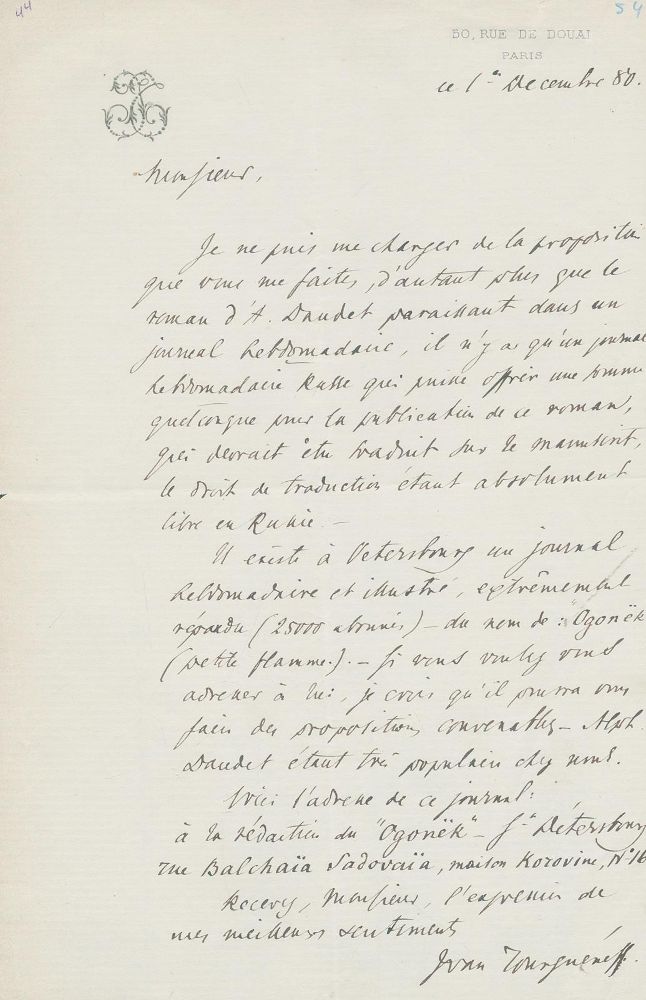 44
54
50, RUE DE DOUAI
PARIS
ce 1er Décembre 80.
Monsieur,
Je ne puis me charger de la proposition
que vous me faites, d'autant plus que le
roman d'A. Daudet paraissant dans un
journal hebdomadaire, il n'y a qu'un journal
hebdomadaire Russe qui puisse offrir une somme
quelconque pour la publication de ce roman,
qui devrait être traduit sur le manuscrit,
le droit de traduction étant absolument
libre en Russie. —
Il existe à Pétersbourg un journal
hebdomadaire et illustré, extrêmement
répandu (25000 abonnés) — du nom de : "Ogonëk"
(petite flamme.). — Si vous voulez vous
adresser à lui, je crois qu'il pourra vous
faire des propositions convenables — Alph.
Daudet étant très populaire chez nous.
Voici l'adresse de ce journal:
à la rédaction du "Ogonëk" — St Pétersbourg
rue Balchaïa Sadovaïa, maison Korovine, No 16
Recevez, Monsieur, l'expression de
mes meilleurs sentiments
Ivan Tourguéneff.